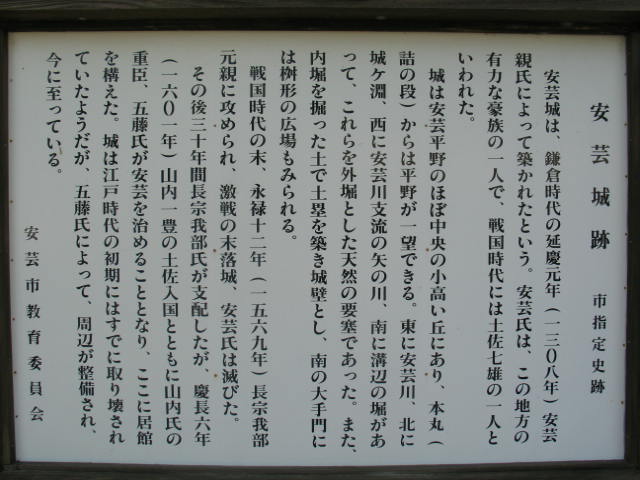 安芸城跡 市指定史跡
安芸城は、鎌倉時代の延慶元年（一三０八年）安芸
親氏によって築かれたという。安芸氏は、この地方の
有力な豪族の一人で、戦国時代には土佐七雄の一人と
いわれた。
城は安芸平野のほぼ中央の小高い丘にあり、本丸（
詰の段）からは平野が一望できる。東に安芸川、北に
城ケ淵、西に安芸川支流の矢の川、南に溝辺の堀があ
って、これらを外堀とした天然の要塞であった。また、
内堀を掘った土で土塁を築き城壁とし、南の大手門に
は桝形の広場もみられる。
戦国時代の末、永禄十二年（一五六九年）長宗我部
元親に攻められ、激戦の末落城、安芸氏は滅びた。
その後三十年間長宗我部氏が支配したが、慶長六年
（一六０一年）山内一豊の土佐入国とともに山内氏の
重臣、五藤氏が安芸を治めることとなり、ここに居館
を構えた。城は江戸時代の初期にはすでに取り壊され
ていたようだが、五藤氏によって、周辺が整備され、
今に至っている。
安芸市教育委員会